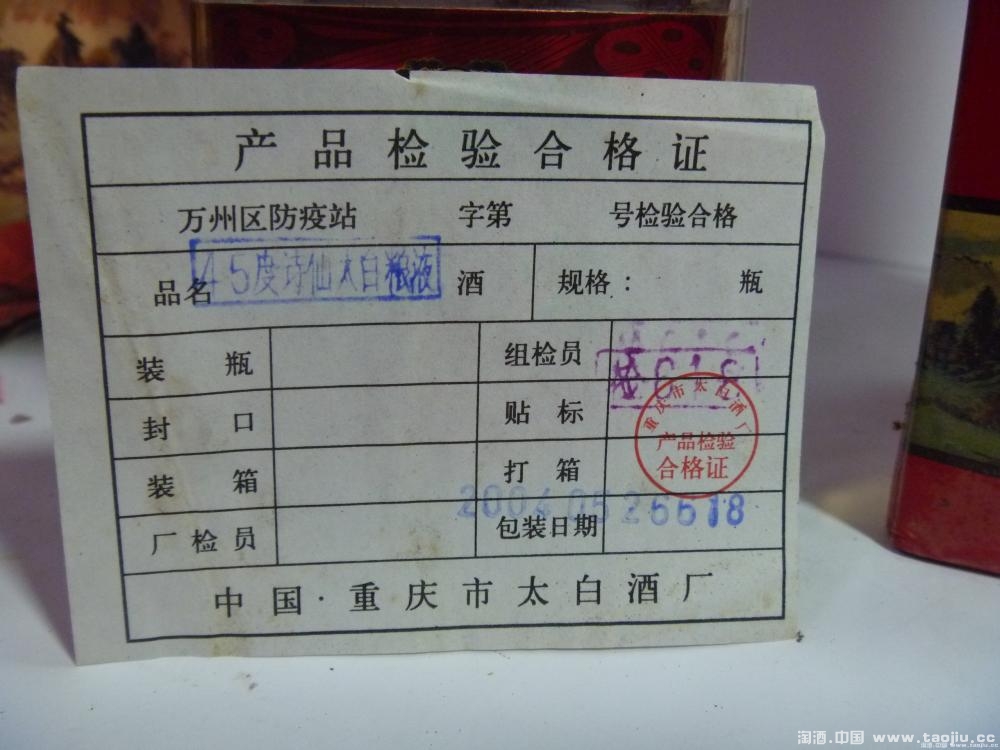 产品检验合格证
万州区防疫站 字第 号检验合格
品名 45度诗仙太白粮液 酒 规格: 瓶
装 瓶 组检员
封 口 贴 标
装 箱 打 箱
厂检员 包装日期 2004052661 8
重庆市太白酒厂
产品检验
合格证
中国·重庆市太白酒厂
淘酒.中国 www.taojiu.cc